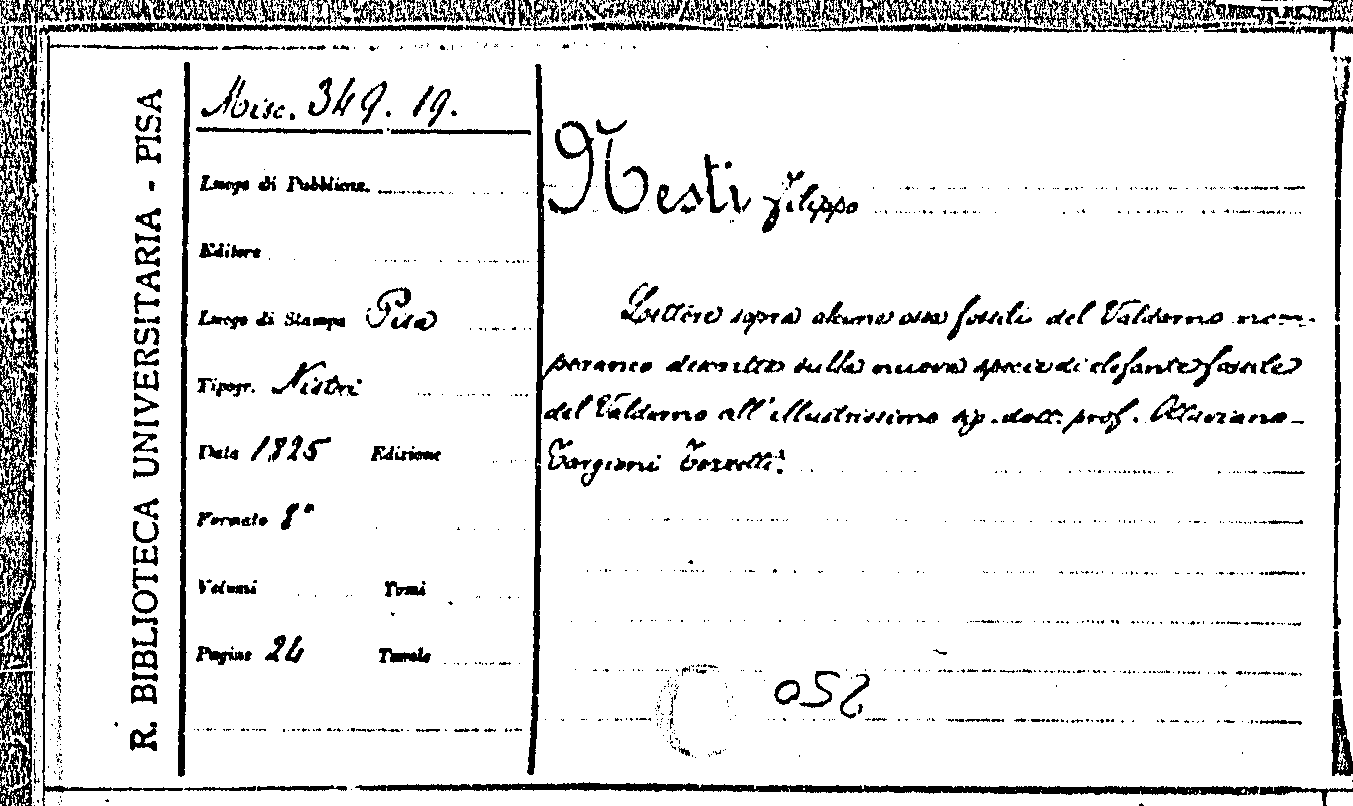 R. BIBLIOTECA UNIVERSITARIA - PISA
Misc. 349. 19.
Luogo di Pubblicaz.
Editore
Luogo di Stampa Pisa
Tipogr. Nistri
Data 1825 Edizione
Formato 8°
Volumi Tomi
Pagine 24 Tavole
Nesti Filippo
Lettere sopra alcune ossa fossili del Valdarno non
peranco descritte sulla nuova specie di elefante fossile
del Valdarno all'illustrissimo sig. dott. prof. Ottaviano
Targioni Tozzetti.